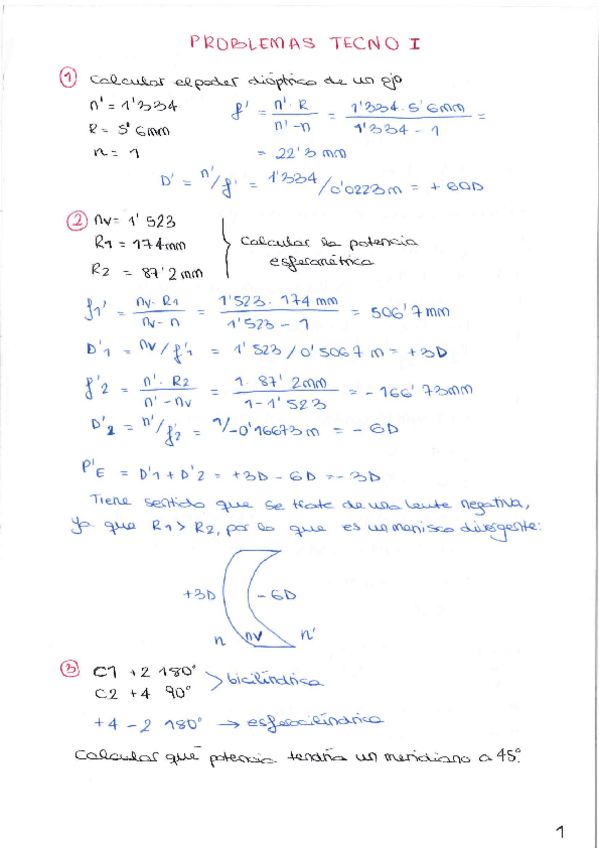 PROBLEMAS TECNO I
① Calcular el poder dióptrico de un ojo
n' = 1'334
R = 5'6mm
n = 1
f' = n'·R / n'-n = 1'334·5'6mm / 1'334-1 =
= 22'3 mm
D' = n'/f' = 1'334/0'0223m = +60D
② nv = 1'523
R1 = 174mm
R2 = 87'2mm
Calcular la potencia
esferométrica
f1' = nv·R1 / nv-n = 1'523·174mm / 1'523-1 = 506'7mm
D'1 = nv/f'1 = 1'523/0'5067m = +3D
f'2 = n'·R2 / n'-nv = 1·87'2mm / 1-1'523 = -166'73mm
D'2 = n'/f'2 = 1/-0'16673m = -6D
P'E = D'1 + D'2 = +3D - 6D = -3D
Tiene sentido que se trate de una lente negativa,
ya que R1 > R2, por lo que es un menisco divergente:
+3D
-6D
n nv n'
③ C1 +2 180°
C2 +4 90°
bicilíndrica
+4 -2 180° → esferocilíndrica
Calcular qué potencia tendría un meridiano a 45°.
1